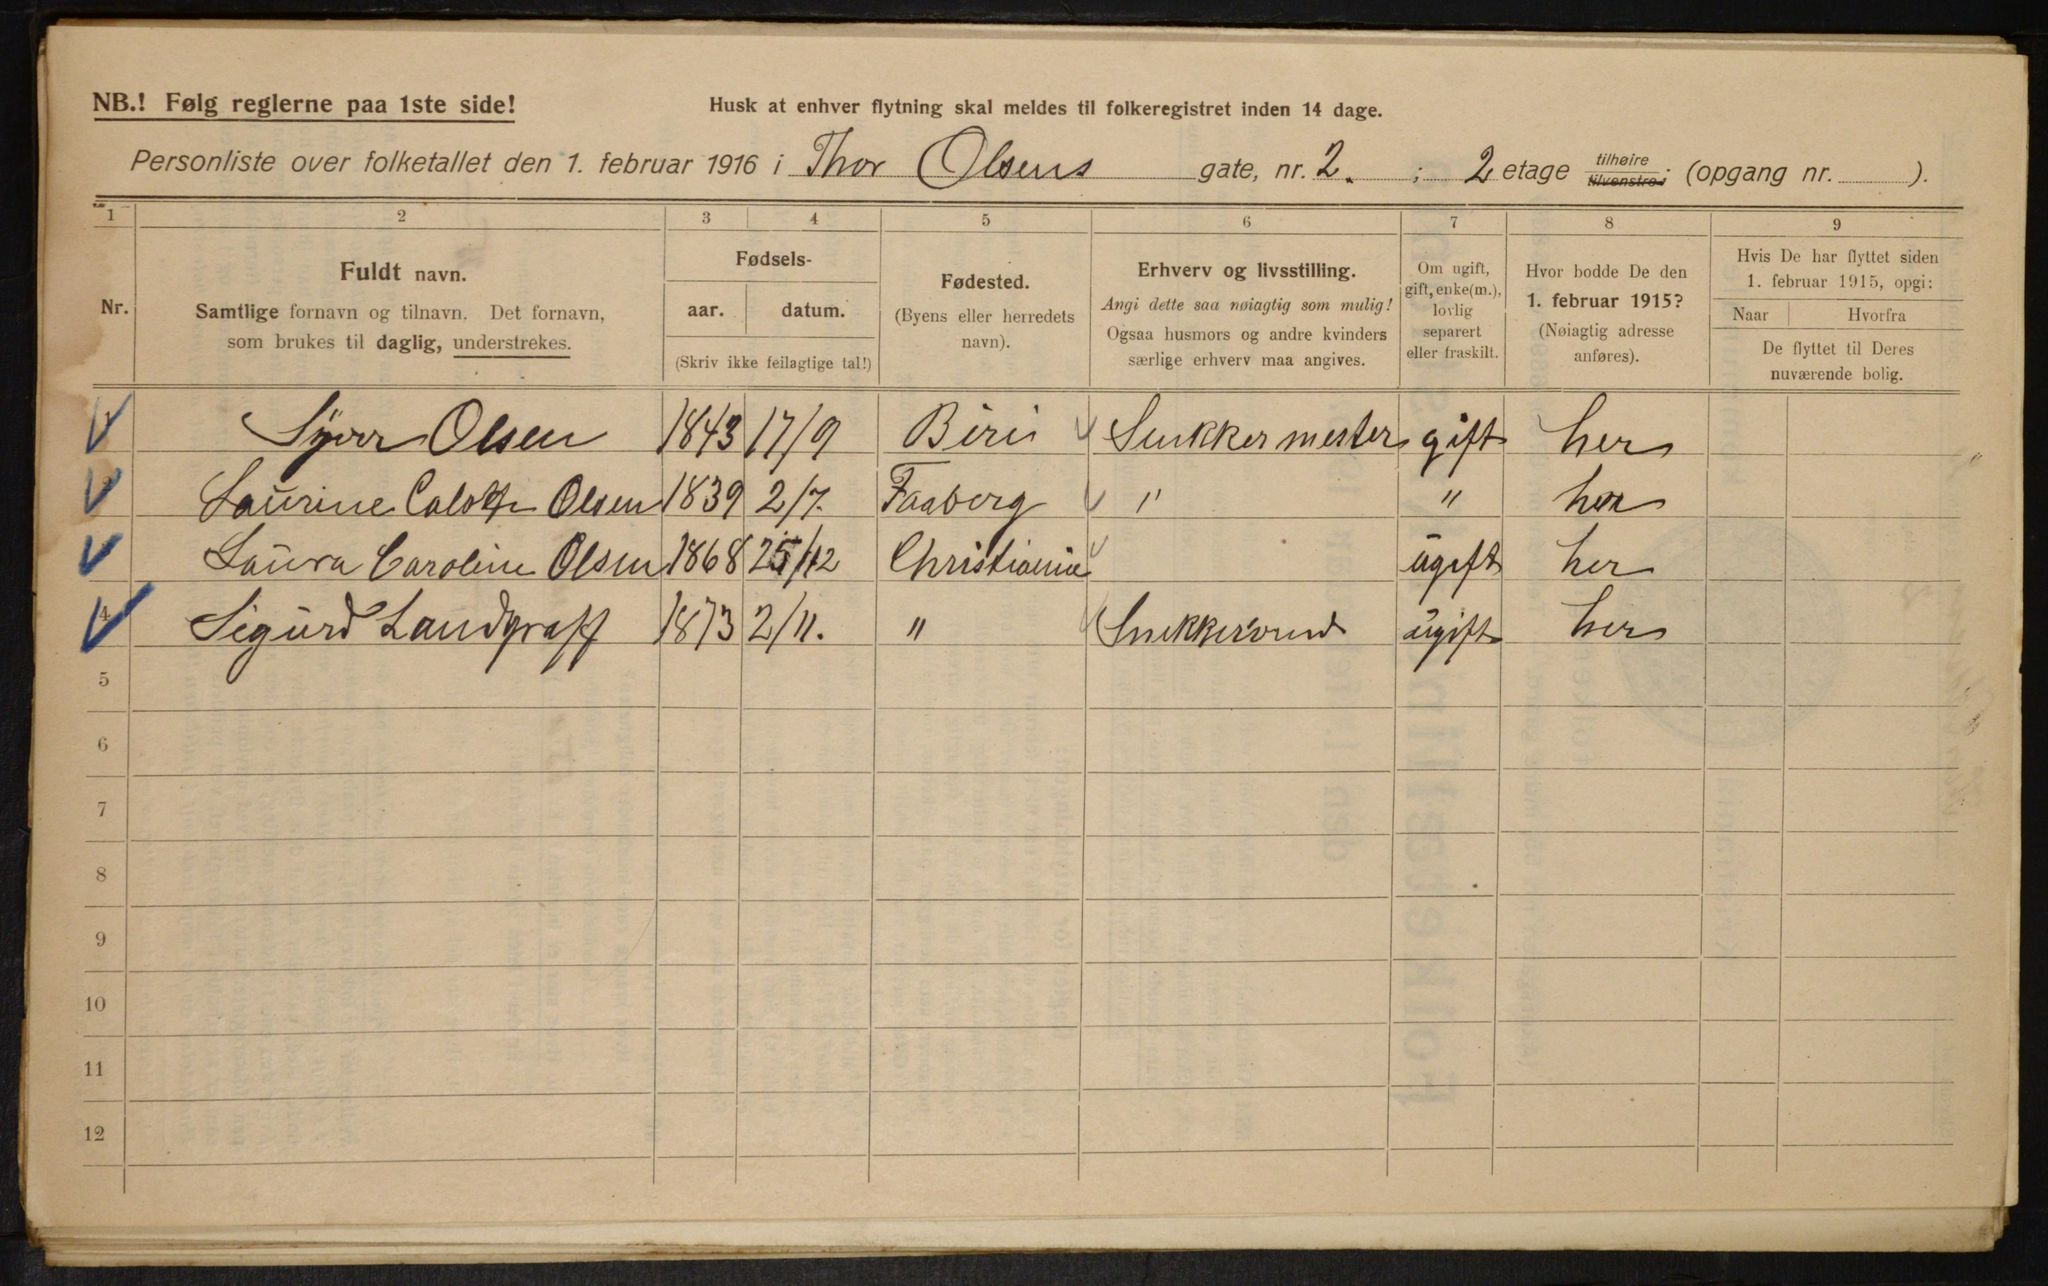 NB.! Følg reglerne paa 1ste side!
Husk at enhver flytning skal meldes til folkeregistret inden 14 dage.
Personliste over folketallet den 1. februar 1916 i Thor Olsens gate, nr. 2. ; 2 etage tilhøire tilvenstre; (opgang nr. ).
1 2 3 4 5 6 7 8 9
Nr.
Fuldt navn.
Samtlige fornavn og tilnavn. Det fornavn,
som brukes til daglig, understrekes.
Fødsels-
aar. datum.
(Skriv ikke feilagtige tal!)
Fødested.
(Byens eller herredets
navn).
Erhverv og livsstilling.
Angi dette saa nøiagtig som mulig!
Ogsaa husmors og andre kvinders
særlige erhverv maa angives.
Om ugift,
gift, enke(m.),
lovlig
separert
eller fraskilt.
Hvor bodde De den
1. februar 1915?
(Nøiagtig adresse
anføres).
Hvis De har flyttet siden
1. februar 1915, opgi:
Naar Hvorfra
De flyttet til Deres
nuværende bolig.
Olsen 1843 17/9 Biri Snekkermester gift her
Laurine Olsen 1839 2/7. Faaberg " " her
Laura Caroline Olsen 1868 25/12 Christiania ugift her
4 Sigurd Landgraff 1873 2/11. " Snekkersvend ugift her
5
6
7
8
9
10
11
12